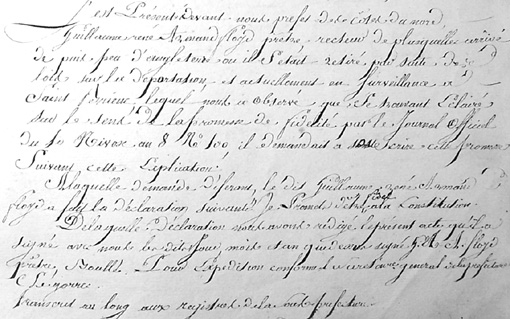 S'est Présenté devant nous prefet des Cotes du nord,
Guillaume rené Armand floyd prêtre, recteur de plusquellec arrivé
de puis peu d'angleterre ou il S'était retiré par suite de la
loix sur la deportation, et actuellement en Surveillance a
Saint brieuc, lequel nous a Observé que Se trouvant Eclairé
sur le Sens de la promesse de fidelité par le Journal Officiel
du 10 Nivose an 8 No 100, il demandait a Souscrire cette promesse
Suivant cette Explication.
A laquelle demande déferant, le dit Guillaume rené Armand
floyd a fait la déclaration suivante Je Promet d'être fidel a la Constitution.
De laquelle Déclaration nous avons redigé le présent acte qu'il a
signé avec nous les dits Jour, mois et an que deux signé G. R. A. floyd
Prêtre, Boullé. Pour Expedition conforme le Secretaire general de la prefecture
Le gorrec.
Transcrit au long aux registres de la Sous prefecture.